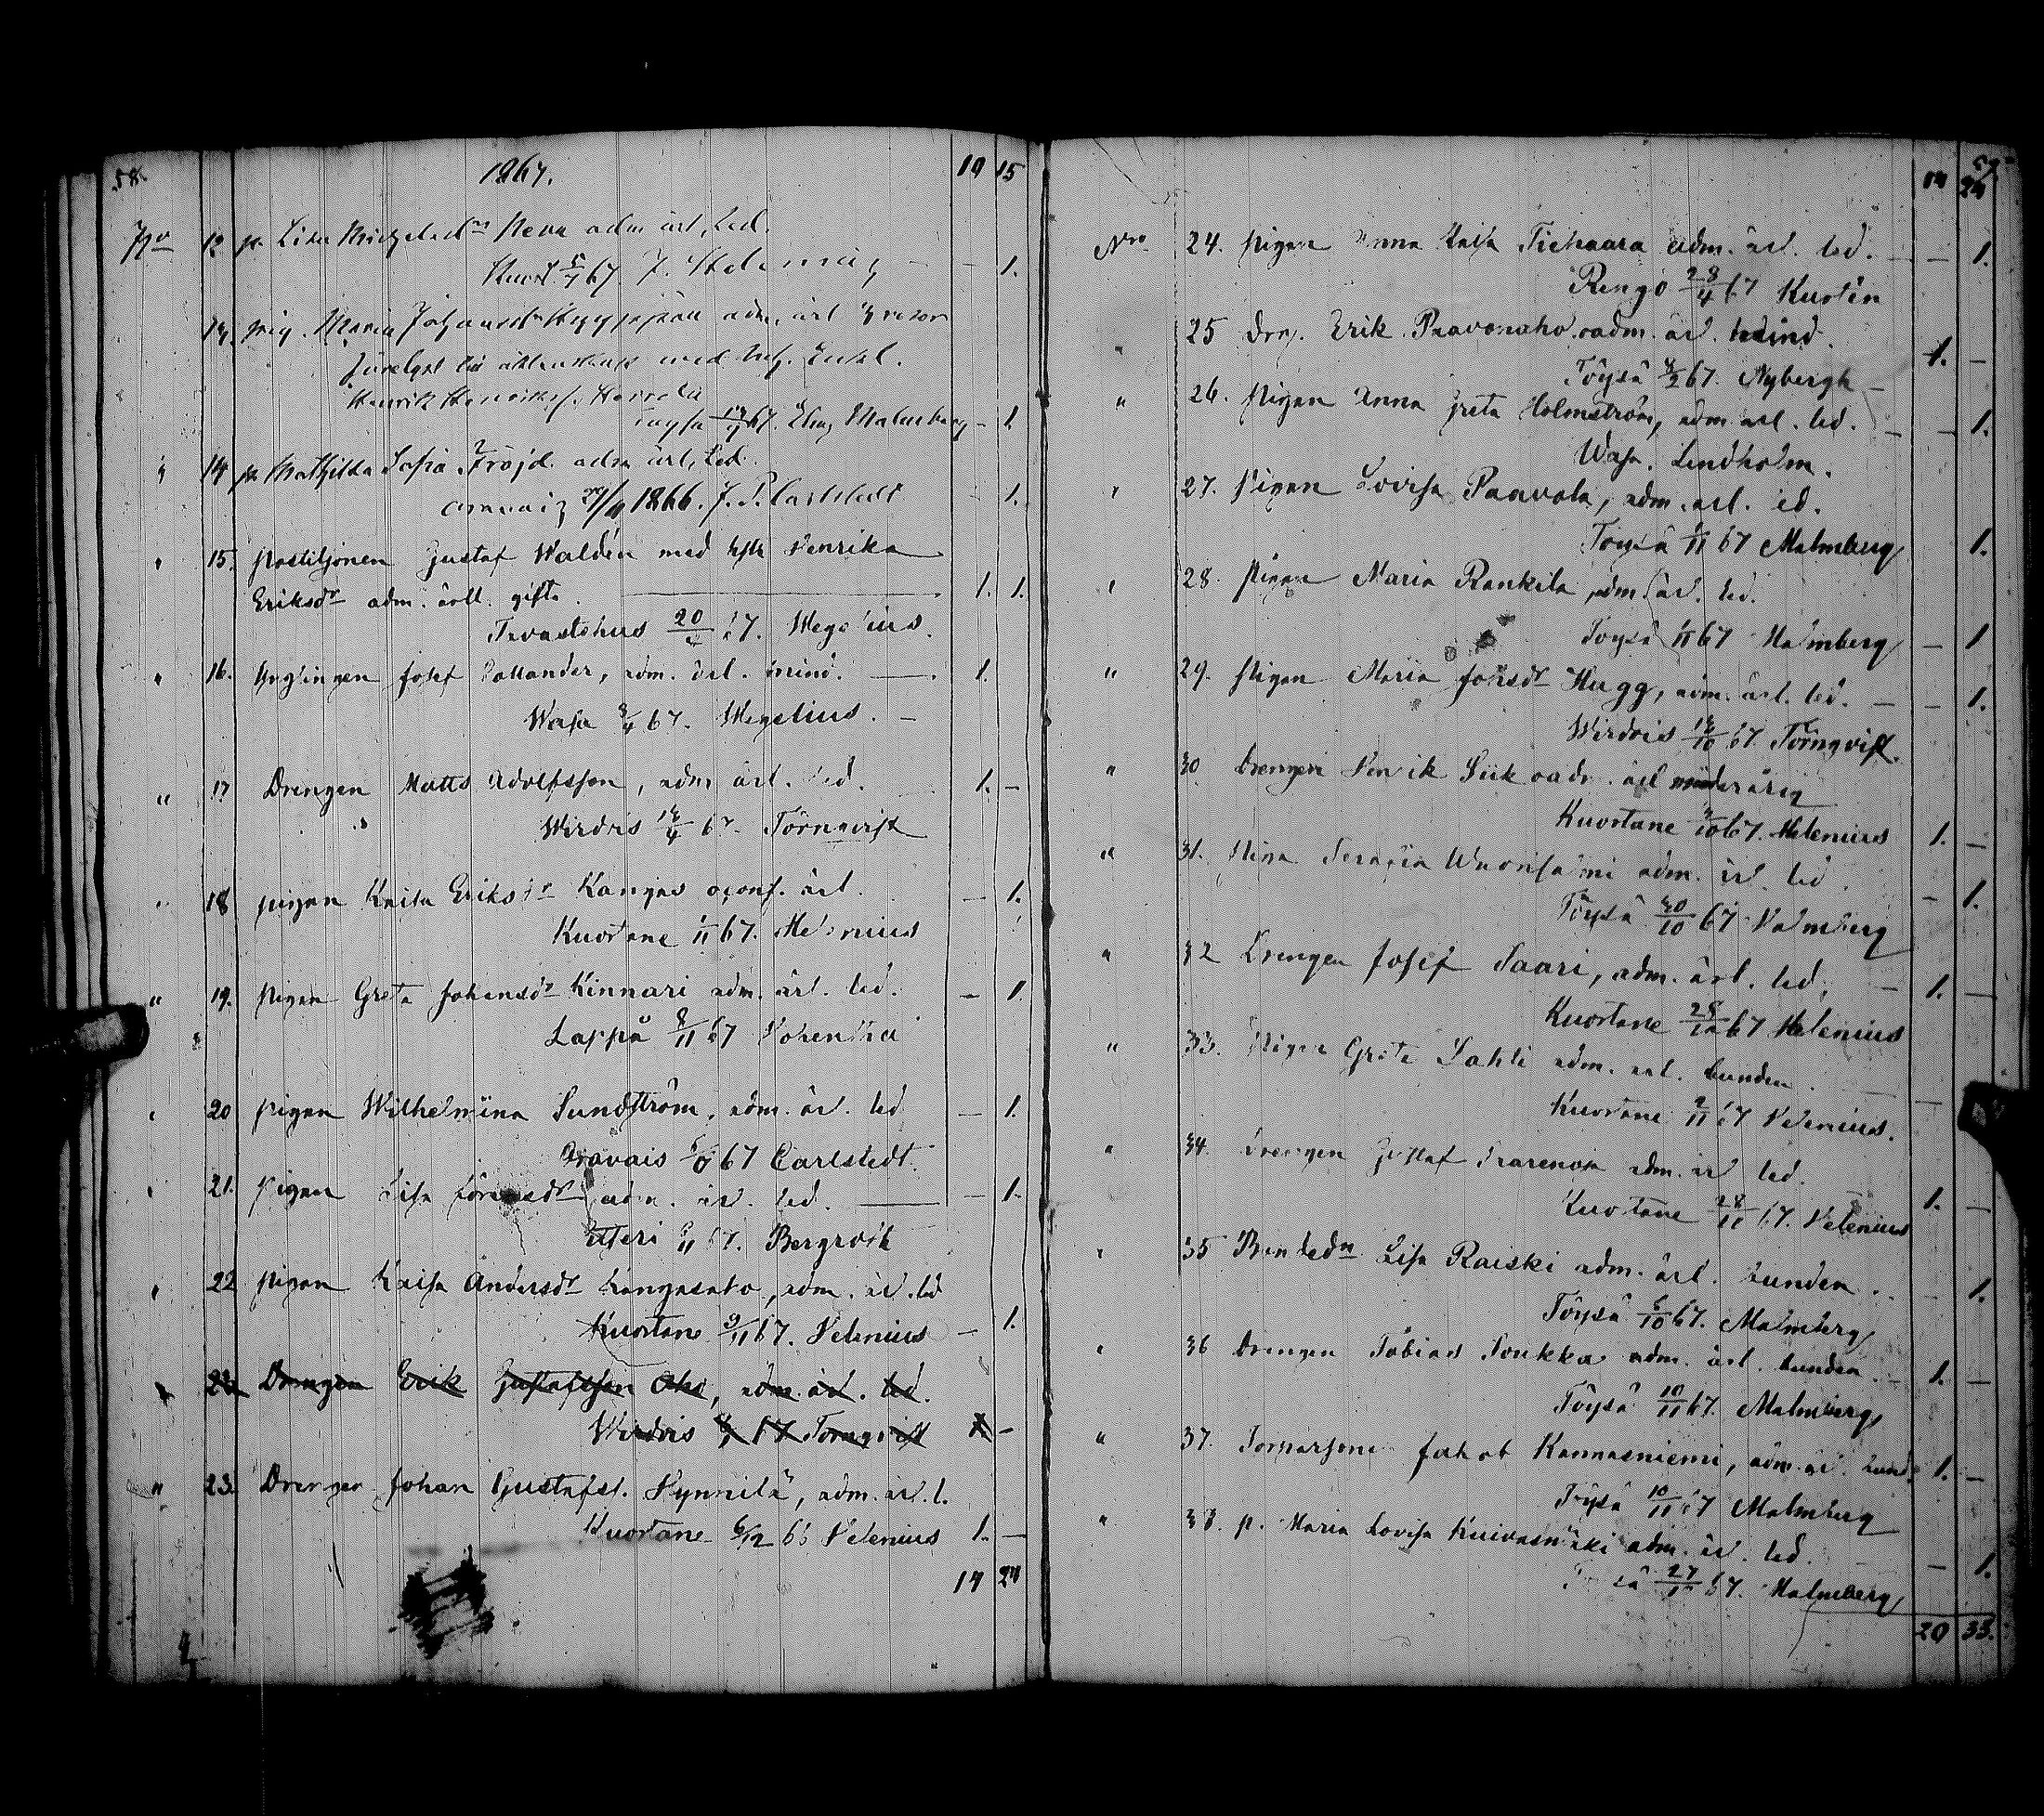 58. 1867. 19 15
No 12 p. Lisa Michelsdr Neva adm. ärl. led.
Kuort. 5/7 67. — — 1.
13. pig. Maria Johansdr Hyyppää adm. ärl
till äktenskap med
Henrik Henrikss. Herrala
Töysä 67. Malmberg — 1
14 p. Mathilda Sofia Fröjd. adm. ärl. led.
1866. J. P. Carlstedt — 1.
15. Postiljonen Gustaf Waldén med hstr Henrika
Eriksdr adm. ärll. gifta. 1. 1.
Tavastehus 20/4 67. Wegelius.
16. Ynglingen Josef Pallander, adm. ärl. mind. — 1.
Wasa 3/4 67. Wegelius. —
" 17 Drengen Matts Adolfsson, adm ärl. led. 1. —
Wirdois 4 67. Törnqvist
18 pigan Kaisa Eriksdr Kangas oconf. ärl. — 1.
Kuortane 1/11 67. Helenius
" 19. pigan Greta Johansdr Kinnari adm. ärl. led. — 1.
Lappå 8/11 67
20 pigan Wilhelmina Sundström, adm. ärl. led — 1.
Oravais 67 Carlstedt.
21. pigan Lisa adm. ärl. led. — — 1.
Etseri 11 67. Bergroth
22 pigan Kaisa Andersdr Kangasaho, adm. ärl. led
Kuortane 9/11 67. Helenius — 1.
Drengen Erik Gustafsson Aho, adm. ärl. led.
Wirdois 67 Törnqvist 1. —
" 23. Drengen Johan Gustafss. Hynnilä, adm. ärl. l.
Kuortane 6/12 Helenius 1. —
19 24
59.
19 24
Nro 24. pigan Anna Kaisa Tiehaara adm. ärl. led. — — 1.
Rengo 28/4 67
" 25 dr. Erik Paavonaho oadm. ärl. mind. 1. —
Töysä 67. Nybergh —
" 26. pigan Anna Greta Holmström, adm ärl. led. — — 1.
Wasa. Lindholm.
" 27. pigan Lovisa Paavola, adm. ärl. led.
Töysä 1/11 67 Malmberg 1.
" 28. pigan Maria Rankila adm. ärl. led.
Töysä 1/11 67 Malmberg — 1
" 29. pigan Maria Johsdr Hugg, adm. ärl. led. — — 1.
Wirdois 10 67. Törnqvist.
" 30 drengen Henrik Siik oadm. ärl minderårig
Kuortane 10 67. Helenius 1. —
" 31. piga Serafia Wuorisalmi adm. ärl. led.
Töysä 30/10 67 Malmberg — 1.
" 32 Drengen Josef Saari, adm. ärl. led. — 1. —
Kuortane 28/10 67 Helenius
" 33. pigan Greta Lahti adm. ärl. bunden. —
Kuortane 2/11 67 Helenius.
" 34. drengen Gustaf adm. ärl led.
Kuortane 28/10 67. Helenius 1. —
" 35 Lisa Raiski adm. ärl. bunden.
Töysä 10 67. Malmberg — 1.
" 36 drengen Tobias Soukka adm. ärl. bunden. — 1. —
Töysä 10/11 67. Malmberg
" 37. Torparsonen Jakob Kannasniemi, adm. ärl. bund. 1. —
Töysä 10/11 67 Malmberg
" 38. p. Maria Lovisa Kuivasmäki adm. ärl. led. —
Töysä 67. Malmberg — 1.
20 33.